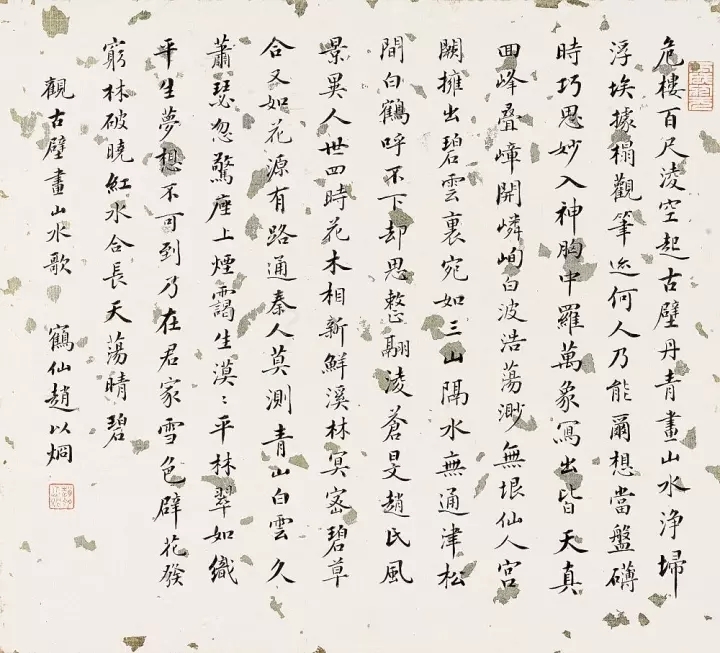 危樓百尺淩空起古壁丹青畫山水浄埽
浮埃據榻觀筆迹何人乃能爾想當盤礴
時巧思妙入神胸中羅萬象寫出皆天真
囬峰疊嶂開嶙峋白波浩蕩渺無垠仙人宮
闕擁出碧雲裏宛如三山隔水無通津松
間白鶴呼不下却思整翮淩蒼旻趙氏風
景異人世四時花木相新鮮溪林冥密碧草
合又如花源有路通秦人莫測青山白雲久
蕭瑟忽驚座上煙靄生漠〻平林翠如織
平生夢想不可到乃在君家雪色壁花發
窮林破曉紅水合長天蕩晴碧
觀古壁畫山水歌 鶴仙趙以炯